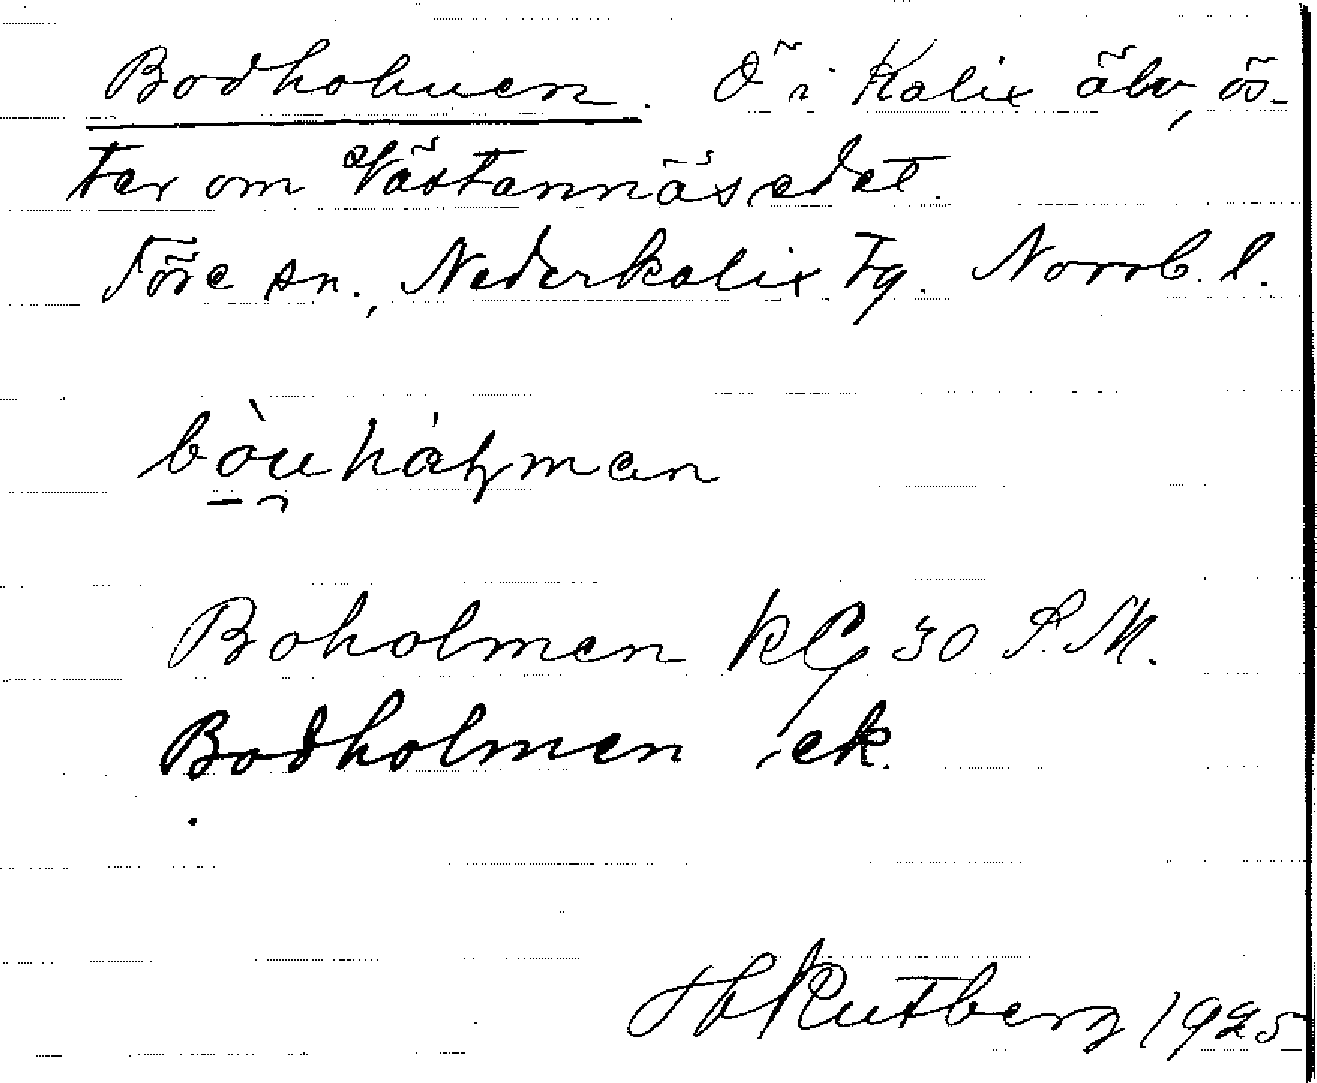 Bodholmen. Ö i Kalix älv, ös-
ter om Västannäsedet.
Töre sn., Nederkalix tg. Norrb. l.
bòu̯hȧɫmən
Boholmen KC 30 S.M.
Bodholmen ek.
H Rutberg 1925